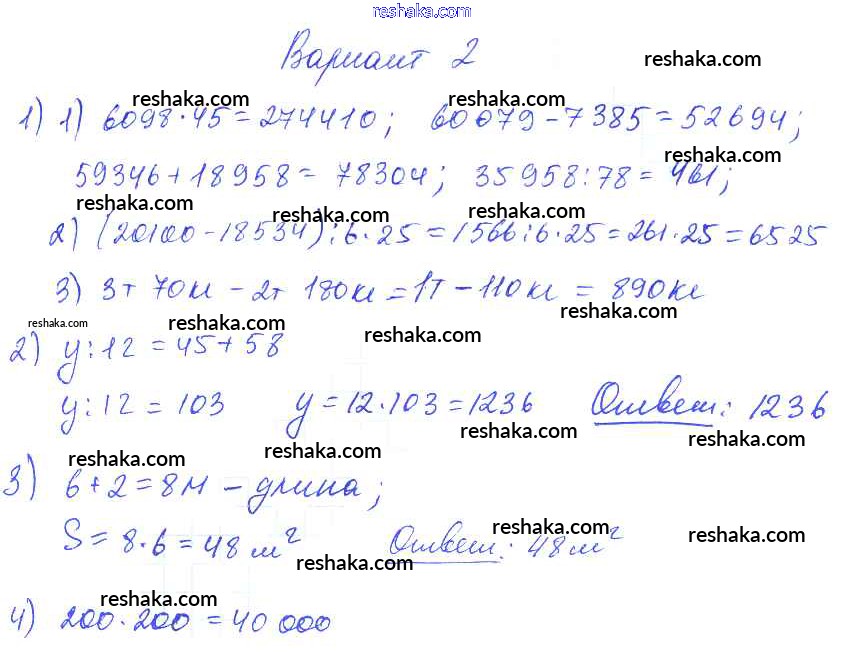 reshaka.com
Вариант 2 reshaka.com
reshaka.com reshaka.com
1) 1) 6098·45=274410; 60079-7385=52694;
reshaka.com
59346+18958=78304; 35958:78=461;
reshaka.com reshaka.com reshaka.com
2) (20100-18534):6·25=1566:6·25=261·25=6525
3) 3т 70кг - 2т 180кг=1т-110кг=890кг
reshaka.com reshaka.com reshaka.com reshaka.com
2) y:12=45+58
y:12=103 y=12·103=1236 Ответ: 1236
reshaka.com reshaka.com reshaka.com
3) 6+2=8м - длина;
reshaka.com reshaka.com
S=8·6=48м² Ответ: 48м²
reshaka.com
reshaka.com
4) 200·200=40 000